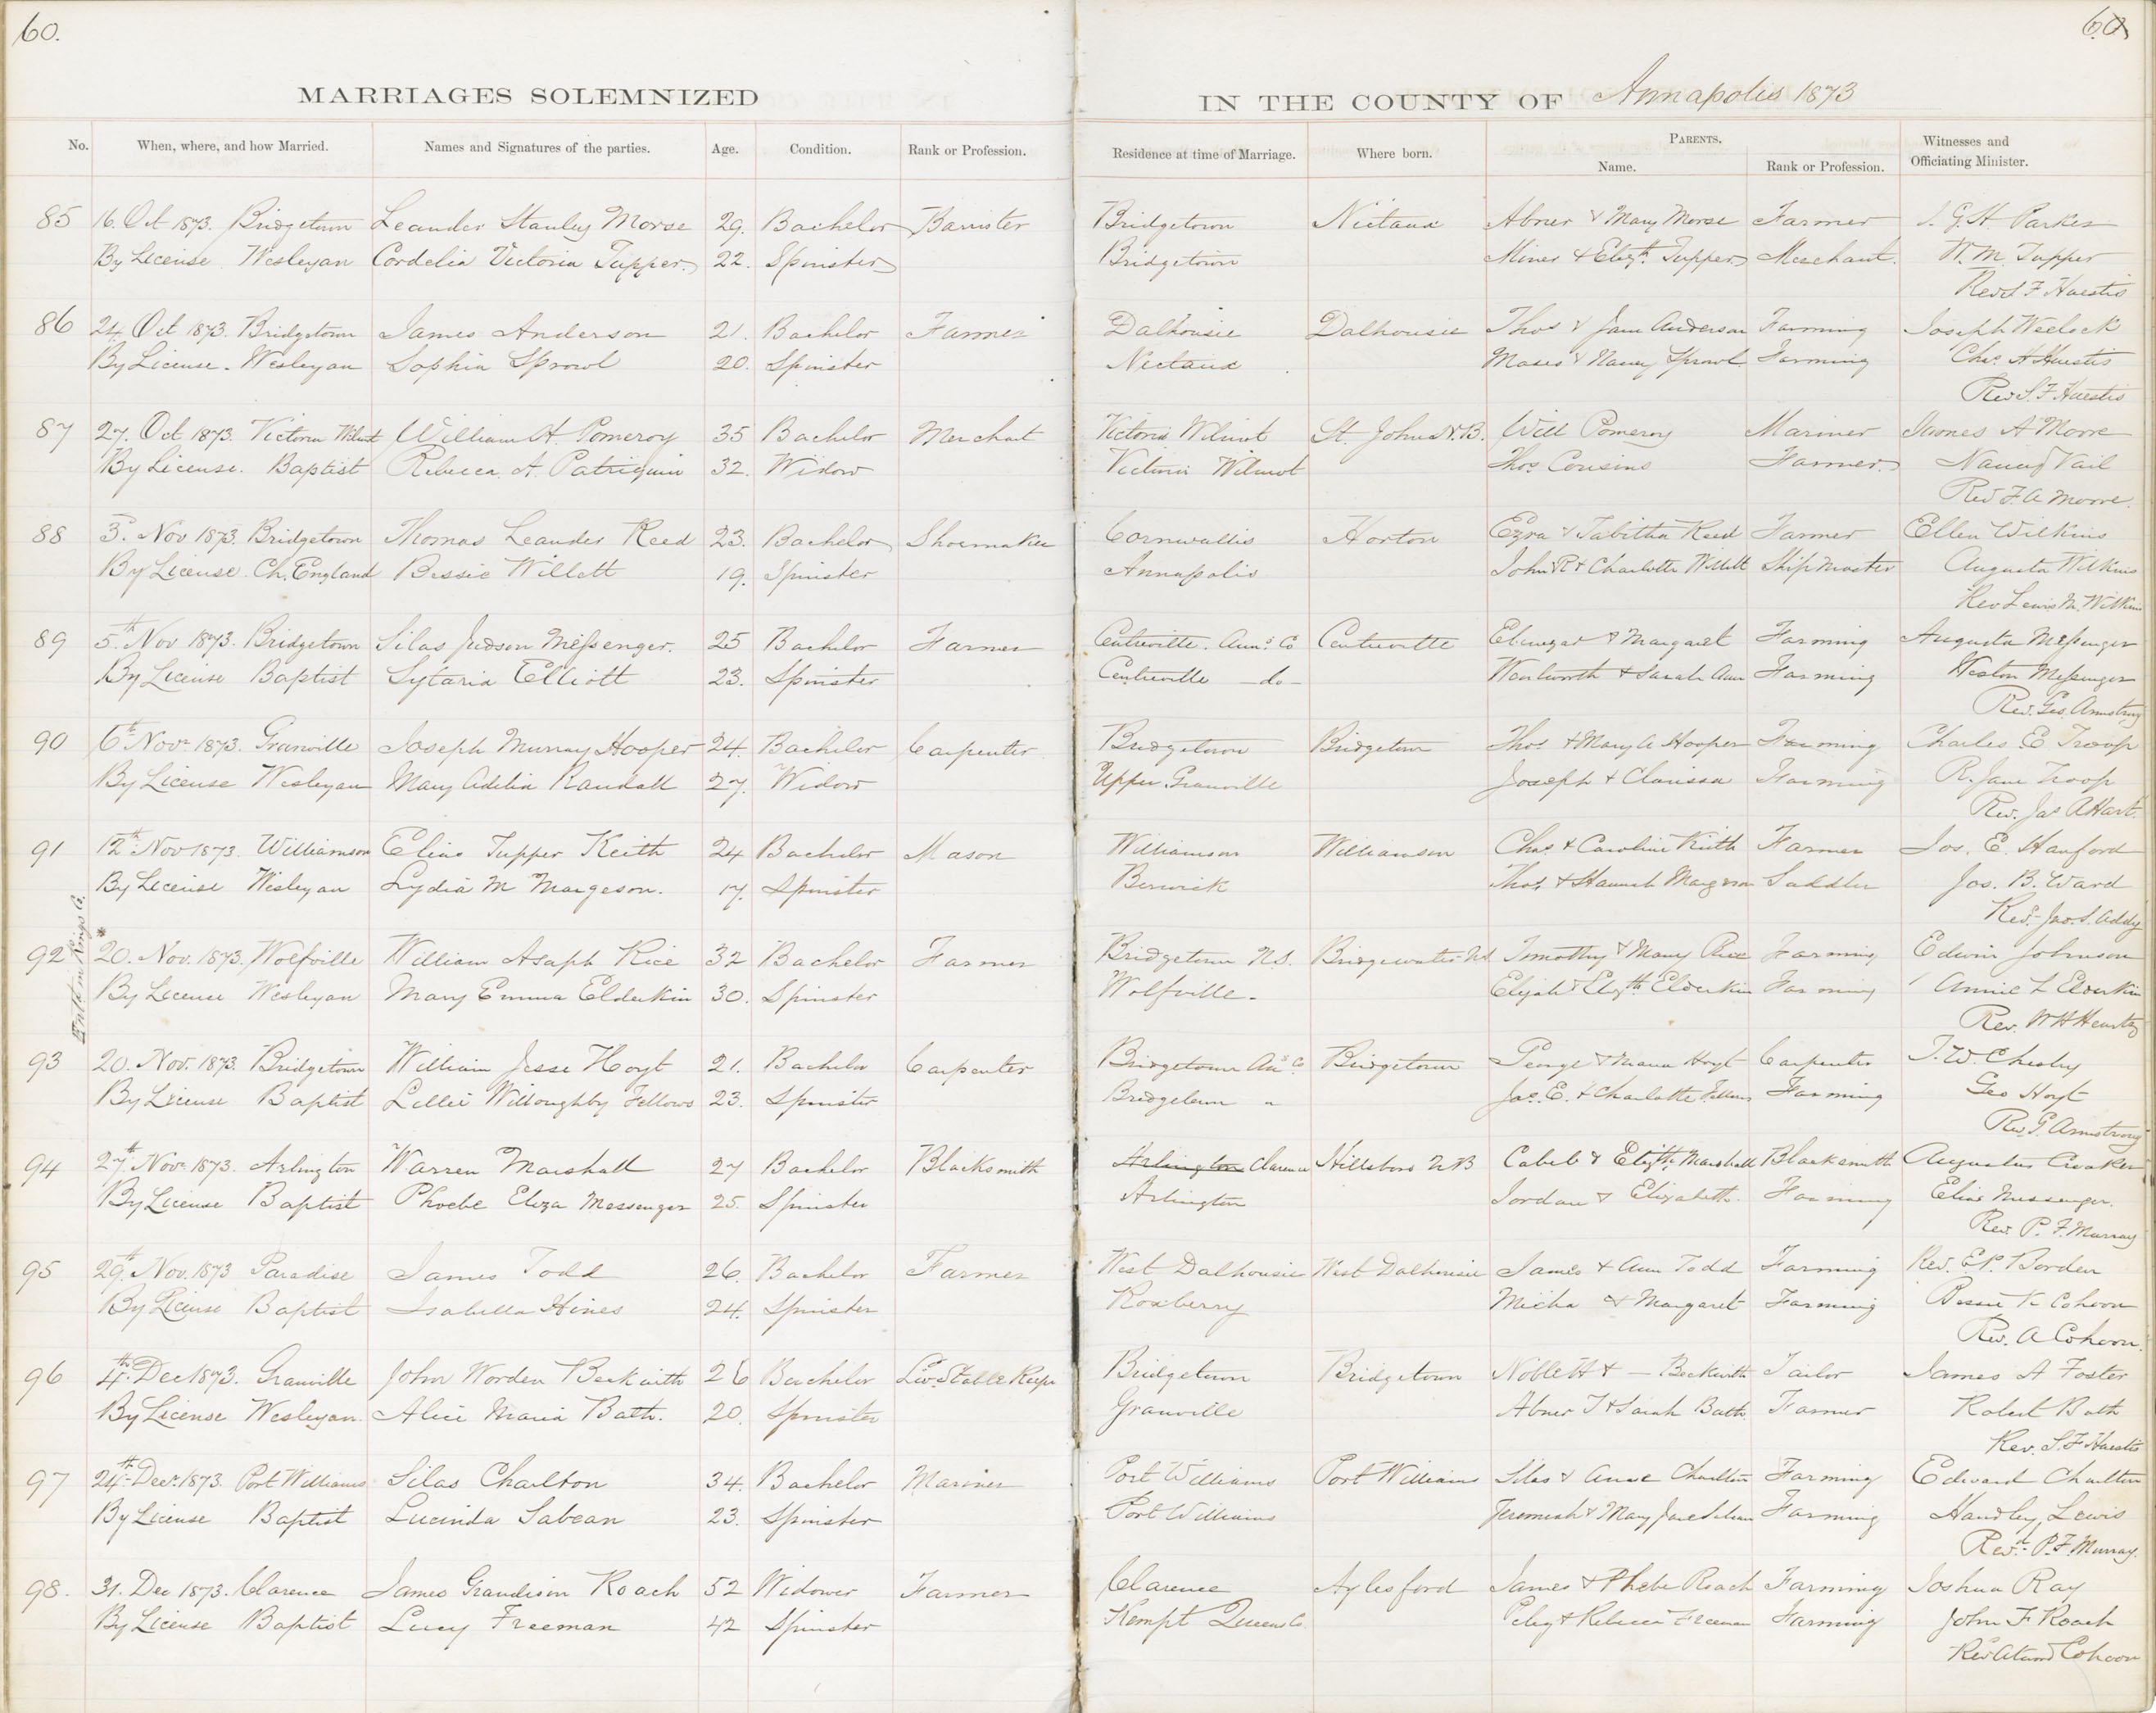 60.
60
MARRIAGES SOLEMNIZED
IN THE COUNTY OF Annapolis 1873
No. When, where, and how Married. Names and Signatures of the parties. Age. Condition. Rank or Profession. Residence at time of Marriage. Where born. PARENTS. Name. Rank or Profession. Witnesses and Officiating Minister.
85 16. Oct 1873. Bridgetown Leander Stanley Morse 29. Bachelor Barrister Bridgetown Nictaux Abner & Mary Morse Farmer I. G. H. Parker
By License Wesleyan Cordelia Victoria Tupper 22. Spinster Bridgetown Miner & Elizth. Tupper Merchant. W. M. Tupper
Revd S F Huestis
86 24. Oct 1873. Bridgetown James Anderson 21. Bachelor Farmer Dalhousie Dalhousie Thos & Jane Anderson Farming Joseph Weelock
By License. Wesleyan Sophia Sprowl 20. Spinster Nictaux Moses & Nancy Sprowl Farming Chas. H Huestis
Rev S. F. Huestis
87 27. Oct 1873. Victoria Wilmot William H. Pomeroy 35 Bachelor Merchant Victoria Wilmot St. John N.B. Will Pomeroy Mariner James A Moore
By License. Baptist Rebecca A. Patriquin 32. Widow Victoria Wilmot Thos. Cousins Farmer Nancy Vail
Revd F. A. Moore.
88 3. Nov 1873. Bridgetown Thomas Leander Reed 23. Bachelor Shoemaker Cornwallis Horton Ezra & Tabitha Reed Farmer Ellen Wilkins
By License. Ch. England Bessie Willett 19. Spinster Annapolis John R & Charlotte Willett Ship Master Augusta Wilkins
Rev Lewis M. Wilkins
89 5th Nov 1873. Bridgetown Silas Judson Messenger. 25 Bachelor Farmer Centreville. Anns. Co Centreville Ebenezar & Margaret Farming Augusta Messenger
By License Baptist Sytaria Elliott 23. Spinster Centreville -do- Wentworth & Sarah Ann Farming Weston Messenger
Rev. Geo. Armstrong
90 6th Novr 1873. Granville Joseph Murray Hooper 24. Bachelor Carpenter Bridgetown Bridgetown Thos & Mary A Hooper Farming Charles E Troop
By License Wesleyan Mary Adelia Randall 27. Widow Upper Granville Joseph & Clarissa Farming R. Jane Troop
Rev. Jas A Hart.
91 12th Nov 1873. Williamson Elias Tupper Keith 24 Bachelor Mason Williamson Williamson Chas. & Caroline Keith Farmer Jos. E. Hanford
By License Wesleyan Lydia M Margeson. 17. Spinster Berwick Thos. & Hannah Margeson Saddler Jas. B. Ward
Revd. Jno. S. Addy
Entd in Kings Co.
92 * 20. Nov. 1873. Wolfville William Asaph Rice 32 Bachelor Farmer Bridgetown N.S. Bridgewater N.S Timothy & Mary Rice Farming Edwin Johnson
By License Wesleyan Mary Emma Elderkin 30. Spinster Wolfville. Elijah & Elizth Elderkin Farming Annie L Elderkin
Rev. W H Heartz
93 20. Nov. 1873. Bridgetown William Jesse Hoyt 21. Bachelor Carpenter Bridgetown Ans Co Bridgetown George & Maria Hoyt Carpenter T. W Chesley
By License Baptist Lillie Willoughby Fellows 23. Spinster Bridgetown " Jas. E. & Charlotte Fellows Farming Geo Hoyt
Rev. G. Armstrong
94 27th Nov. 1873. Arlington Warren Marshall 27 Bachelor Blacksmith Arlington Clarence Hillsboro N.B Caleb & Elizth Marshall Blacksmith Augustus Croaker
By License Baptist Phoebe Eliza Messenger 25. Spinster Arlington Jordan & Elizabeth. Farming Elias Messenger.
Rev. P. F. Murray
95 29th. Nov. 1873 Paradise James Todd 26. Bachelor Farmer West Dalhousie West Dalhousie James & Ann Todd Farming Rev. E. P. Borden
By License Baptist Isabella Hines 24. Spinster Roxberry Micha & Margaret Farming Bessie K Cohoon
Rev. A Cohoon.
96 4th. Dec 1873. Granville John Worden Beckwith 26 Bachelor Liv. Stable Keepr Bridgetown Bridgetown Noble H & - Beckwith Tailor James A Foster
By License Wesleyan. Alice Maria Bath. 20. Spinster Granville Abner T & Sarah Bath. Farmer Robert Bath
Rev. S. F Huestis
97 24th. Decr. 1873. Port Williams Silas Charlton 34. Bachelor Mariner Port Williams Port Williams Silas & Anne Charlton Farming Edward Charlton
By License Baptist Lucinda Sabean 23. Spinster Port Williams Jeremiah & Mary Jane Sabean Farming Handley Lewis
Revd. P. F. Murray.
98. 31. Dec 1873. Clarence James Grandison Roach 52 Widower Farmer Clarence Aylesford James & Phebe Roach Farming Joshua Ray
By License Baptist Lucy Freeman 42 Spinster Kempt Queens Co. Peleg & Rebecca Freeman Farming John F Roach
Rev Atwood Cohoon